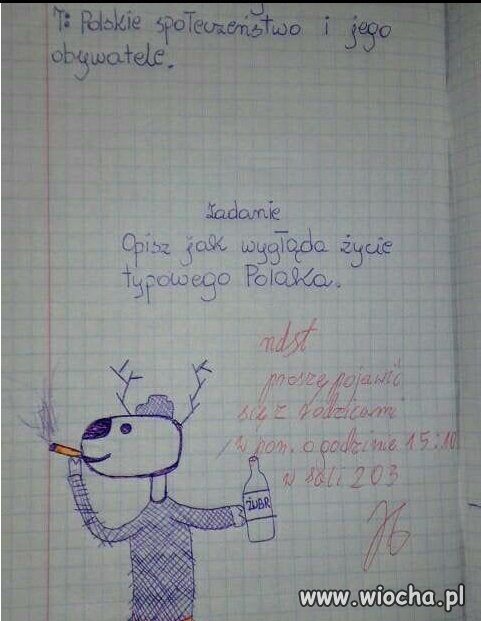 T: Polskie społeczeństwo i jego
obywatele.
Zadanie
Opisz jak wygłąda życie
typowego Polaka.
ndst
proszę pojawić
się z rodzicami
w pon. o godzinie 15:10
w sali 203
ŻUBR
www.wiocha.pl